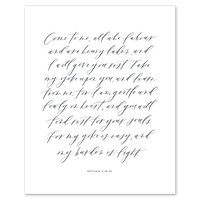 Come to me, all who labour
and are heavy laden, and
I will give you rest. Take
my yoke upon you, and learn
from me, for I am gentle and
lowly in heart, and you will
find rest for your souls.
For my yoke is easy, and
my burden is light.